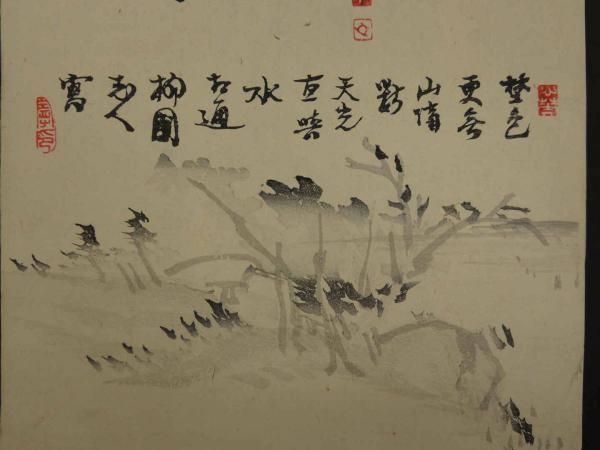 埜色
更無
山隔
斷
天光
直與
水
相通
人
寫